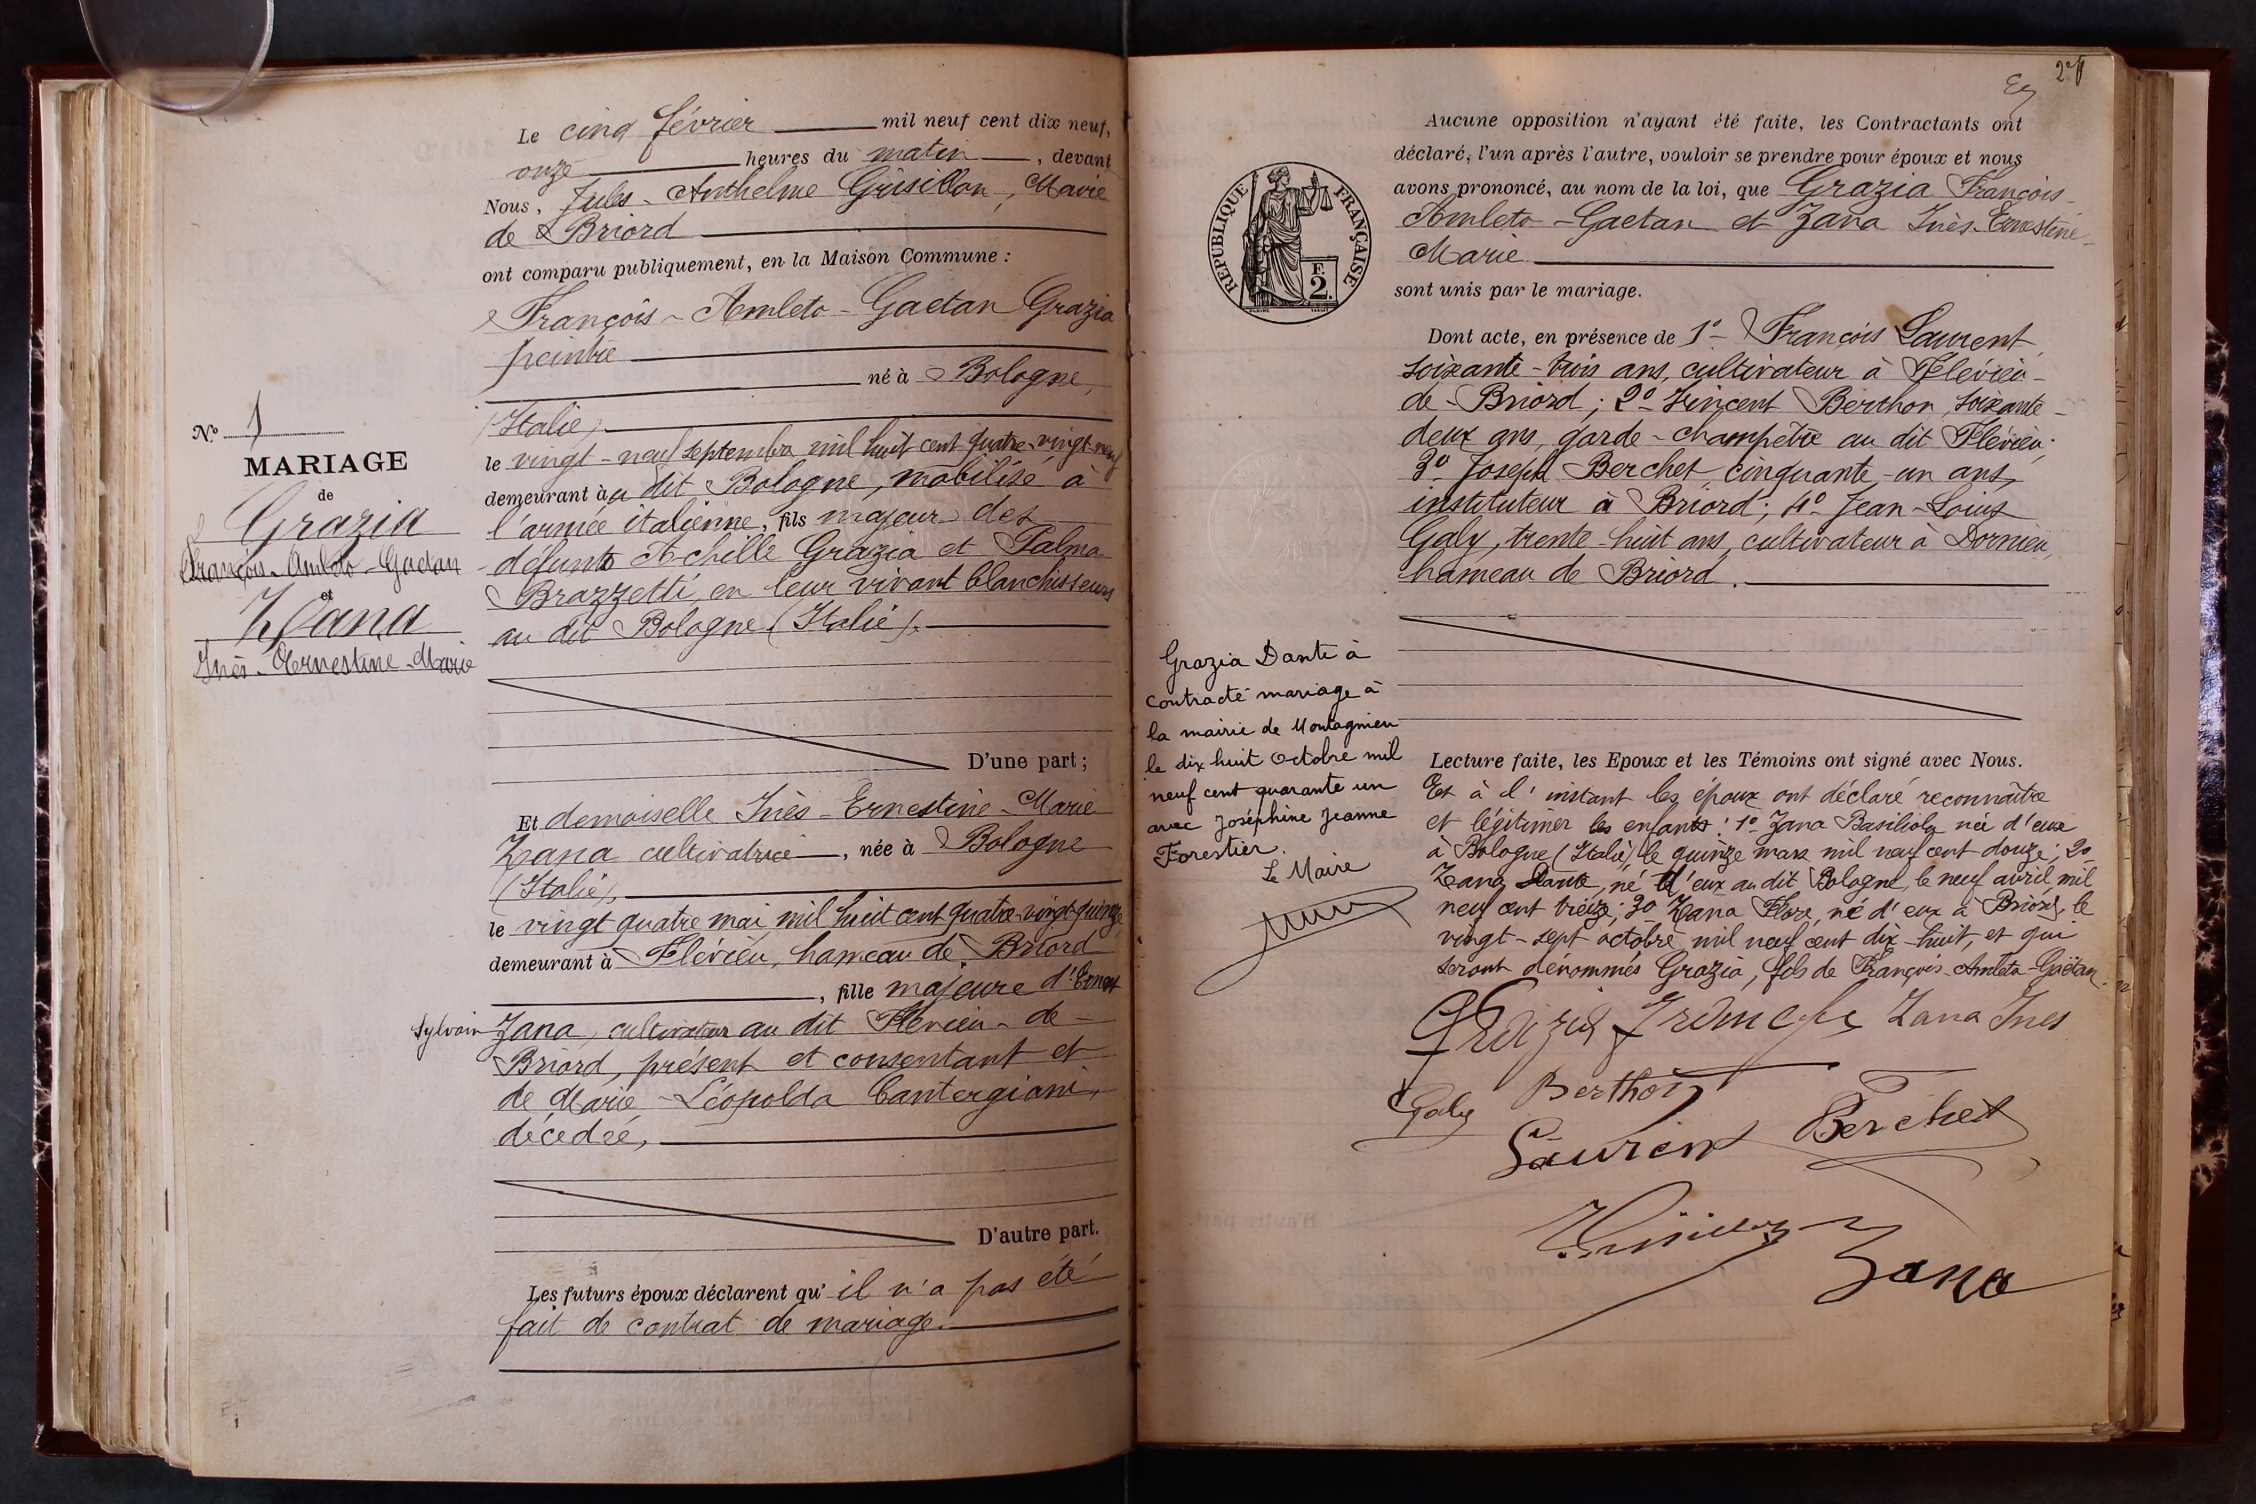 Le cinq février mil neuf cent dix neuf,
onze heures du matin, devant
Nous, Jules-Anthelme Grisillon, Maire
de Briord
ont comparu publiquement, en la Maison Commune :
François-Amleto-Gaetan Grazia
peintre
né à Bologne,
(Italie)
le vingt-neuf septembre mil huit cent quatre-vingt-neuf
demeurant au dit Bologne, mobilisé à
l'armée italienne, fils majeur des
défunts Achille Grazia et Palma
Brazzetti, en leur vivant blanchisseurs
au dit Bologne (Italie).
D'une part ;
N° 1
MARIAGE
de
Grazia
François-Amleto-Gaetan
et
Zana
Inès-Ernestine-Marie
Et demoiselle Inès-Ernestine-Marie
Zana cultivatrice, née à Bologne
(Italie),
le vingt quatre mai mil huit cent quatre-vingt-quinze,
demeurant à Flévieu, hameau de Briord
, fille majeure d'Ernest
Sylvain Zana, cultivateur au dit Flévieu-de-
Briord, présent et consentant et
de Marie-Léopolda Cantergiani,
décédée,
D'autre part.
Les futurs époux déclarent qu'il n'a pas été
fait de contrat de mariage.
Aucune opposition n'ayant été faite, les Contractants ont
déclaré, l'un après l'autre, vouloir se prendre pour époux et nous
avons prononcé, au nom de la loi, que Grazia François-
Amleto-Gaetan et Zana Inès-Ernestine-
Marie
sont unis par le mariage.
REPUBLIQUE FRANÇAISE
F.
2.
Dont acte, en présence de 1°- François Laurent
soixante-trois ans, cultivateur à Flévieu-
de-Briord ; 2°- Vincent Berthon, soixante-
deux ans, garde-champêtre au dit Flévieu ;
3°- Joseph Berchet, cinquante-un ans,
instituteur à Briord ; 4°- Jean-Louis
Galy, trente-huit ans, cultivateur à Dornieu,
hameau de Briord.
Grazia Dante à
contracté mariage à
la mairie de Montagnieu
le dix huit octobre mil
neuf cent quarante un
avec Joséphine Jeanne
Forestier.
Le Maire
Lecture faite, les Epoux et les Témoins ont signé avec Nous.
Et à l'instant les époux ont déclaré reconnaître
et légitimer les enfants : 1° Zana Basiliola née d'eux
à Bologne (Italie) le quinze mars mil neuf cent douze ; 2°
Zana Dante, né d'eux au dit Bologne, le neuf avril mil
neuf cent treize ; 3° Zana Flore, né d'eux à Briord, le
vingt-sept octobre mil neuf cent dix-huit, et qui
seront dénommés Grazia, fils de François-Amleto-Gaëtan.
Zana Ines
Galy Berthon
Laurent Berchet
Zana